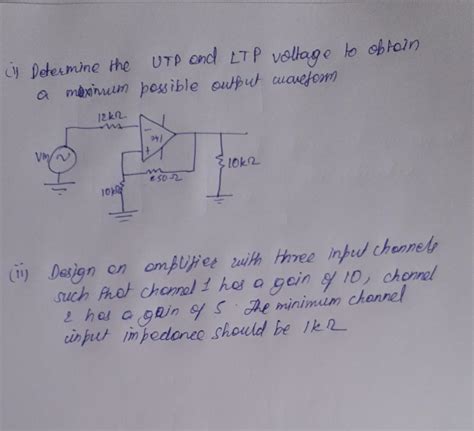 (i) Determine the UTP and LTP voltage to obtain
a maximum possible output waveform
12kΩ
741
Vin
10kΩ
250Ω
10kΩ
(ii) Design an amplifier with three input channels
such that channel 1 has a gain of 10, channel
2 has a gain of 5. The minimum channel
input impedance should be 1kΩ